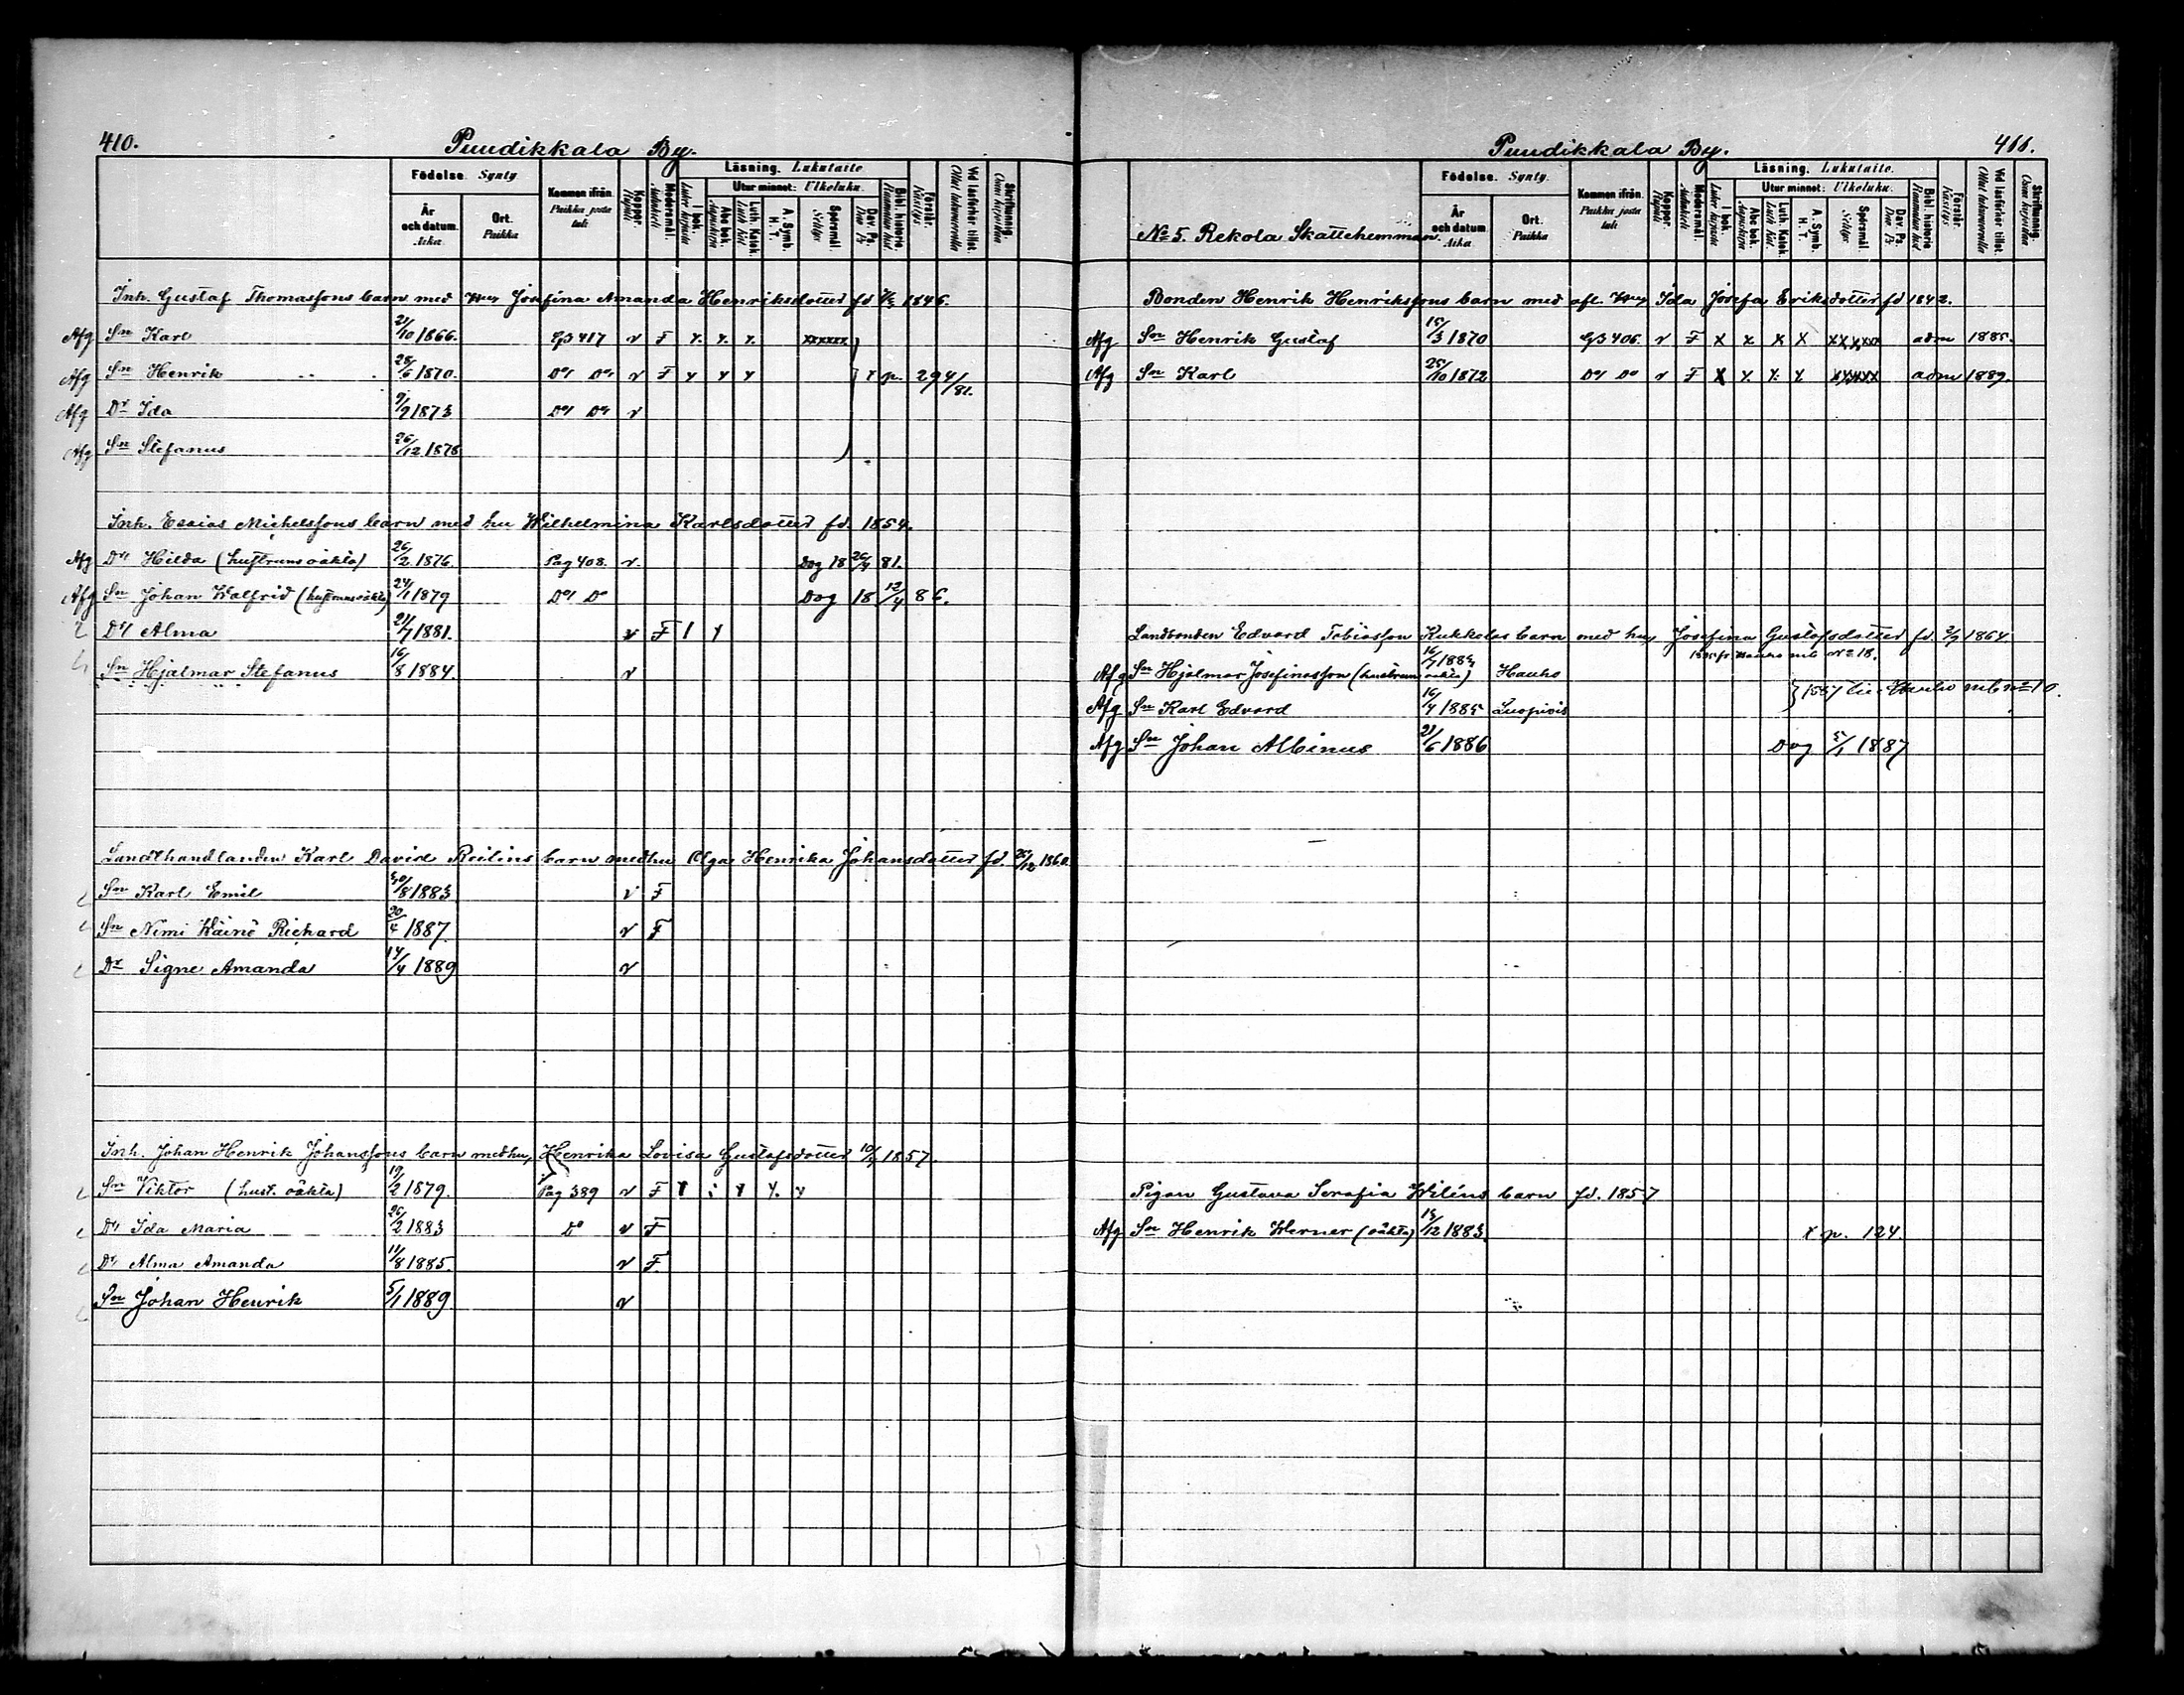 410.
Puudikkala By.
Födelse. Synty
Kommen ifrån. Paikka josta tuli
Koppor. Rupuli
Modersmål. Äidinkieli
Läsning. Lukutaito
I bok. Lukee kirjasta
Utur minnet: Ulkoluku.
Abc bok. Aapiskirja
Luth. Katek. Luth. Kat.
A. Symb. H. T.
Spörsmål. Selitys
Dav. Ps. Dav. Ps.
Bibl. historie
Försår. Käsitys
Vid läsförhör tillst.
Skriftkunnig.
År och datum. Aika
Ort. Paikka
Inh. Gustaf Thomassons barn med Josefina Amanda Henriksdotter fd 1846.
Afg Sn Karl 21/10 1866. 417 v F x. x. x. xxxxxx
Afg Sn Henrik 28/6 1870. Do Do v F x x x x p. 294/81.
Afg Dr Ida 9/9 1873 Do Do v
Afg Sn Stefanus 26/12 1878
Inh. Esaias Michelssons barn med hu Wilhelmina Karlsdotter fd. 1854.
Afg Dr Hilda (hustruns oäkta) 26/2 1876. Pag 408. v. Dog 18 26/4 81.
Afg Sn Johan Walfrid (hustruns oäkta) 24/1 1879 Do Do Dog 18 12/4 86.
Dr Alma 21/7 1881. v F
Sn Hjalmar Stefanus 16/8 1884. v
Landthandlanden Karl David Reilins barn med hu Olga Henrika Johansdotter fd. 25/12 1860
Sn Karl Emil 30/8 1883 v F
Sn Nimi Wäinö Richard 20/4 1887. v F
Dr Signe Amanda 14/4 1889 v
Inh. Johan Henrik Johanssons barn med hu, Henrika Lovisa Gustafsdotter 1857.
Sn Viktor (hust. oäkta) 19/2 1879. Pag 389 v F
Dr Ida Maria 26/2 1883 Do v F
Dr Alma Amanda 11/8 1885. v F.
Sn Johan Henrik 5/1 1889 v
Puudikkala By.
411.
No 5. Rekola Skattehemman.
Födelse. Synty.
År och datum. Aika
Ort. Paikka
Kommen ifrån. Paikka josta tuli
Koppor. Rupuli
Modersmål. Äidinkieli
Läsning. Lukutaito.
I bok. Lukee kirjasta
Utur minnet: Ulkoluku.
Abc bok. Aapiskirja
Luth. Katek. Luth. Kat.
A. Symb. H. T.
Spörsmål. Selitys
Dav. Ps. Dav. Ps.
Bibl. historie
Försår. Käsitys
Vid läsförhör tillst.
Skriftkunnig.
Bonden Henrik Henrikssons barn med afl. Ida Josefa Eriksdotter fd 1842.
Afg Sn Henrik Gustaf 15/3 1870 406. v F x x x x xxxxxx adm 1885.
Afg Sn Karl 25/10 1872 Do Do v F x x x x xxxxxx adm 1889.
Landbonden Edvard Tobiasson Kukkolas barn med hu, Josefina Gustafsdotter fd. 1864.
Afg Sn Hjalmar Josefinasson (hustruns oäkta) Hauho
Afg Sn Karl Edvard 16/4 1885 Luopiois
Afg Sn Johan Albinus 21/6 1886 Dog 5/1 1887
Pigan Gustava Serafia Wiléns barn fd. 1857
Afg Sn Henrik Werner (oäkta) 13/12 1883. x p. 124